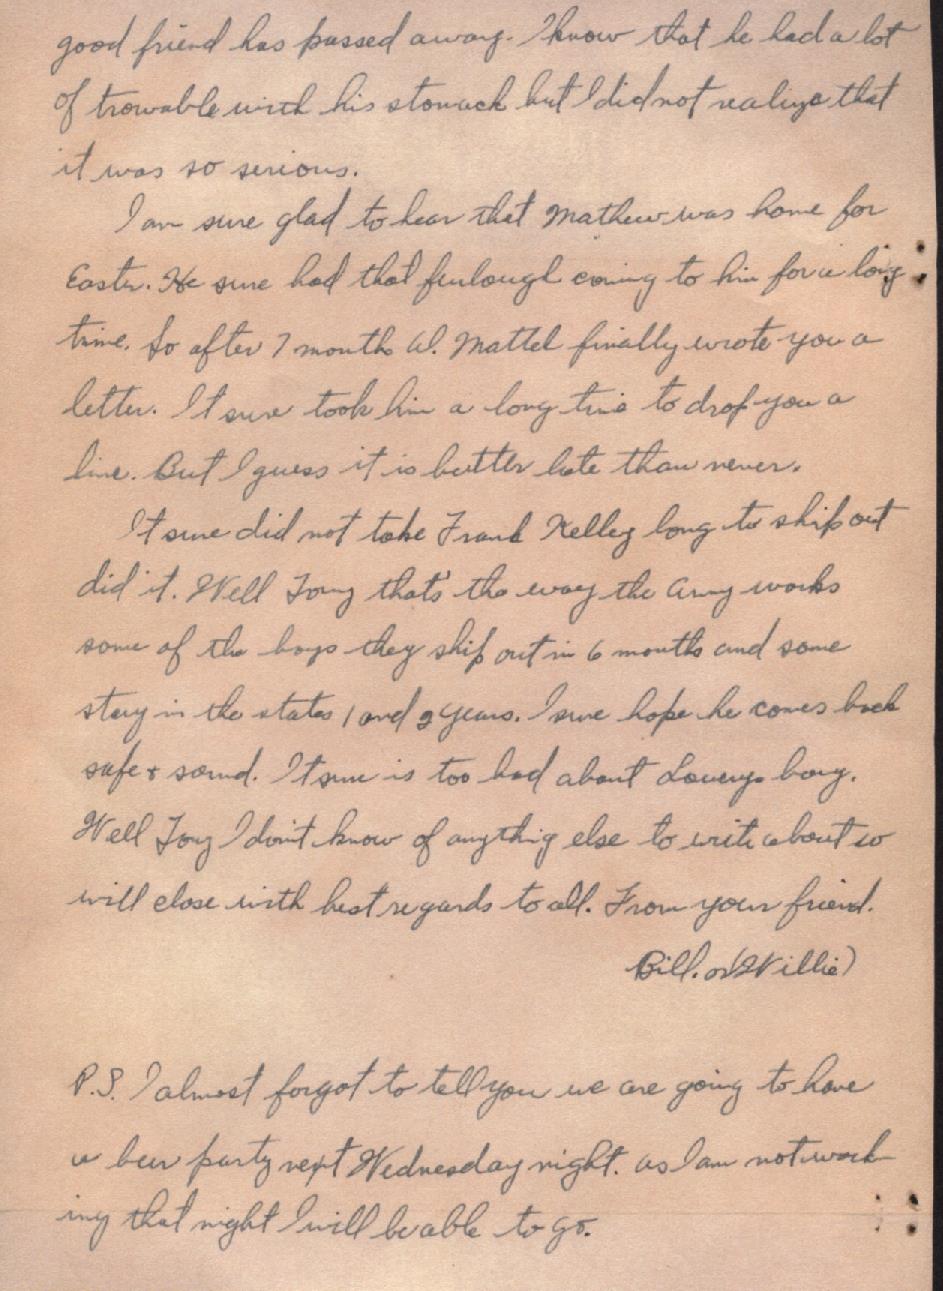 good friend has passed away. I know that he had a lot
of trowable with his stomach but I did not realize that
it was so serious.
I am sure glad to hear that Mathew was home for
Easter. He sure had that furlough coming to him for a long
time. So after 7 months W. Mattel finally wrote you a
letter. It sure took him a long time to drop you a
line. But I guess it is better late than never.
It sure did not take Frank Kelley long to ship out
did it. Well Tony that's the way the Army works
some of the boys they ship out in 6 months and some
stay in the states 1 and 2 years. I sure hope he comes back
safe & sound. It sure is too bad about boy.
Well Tony I don't know of anything else to write about so
will close with best regards to all. From your friend.
Bill. or (Willie)
P.S. I almost forgot to tell you we are going to have
a beer party next Wednesday night. as I am not work-
ing that night I will be able to go.